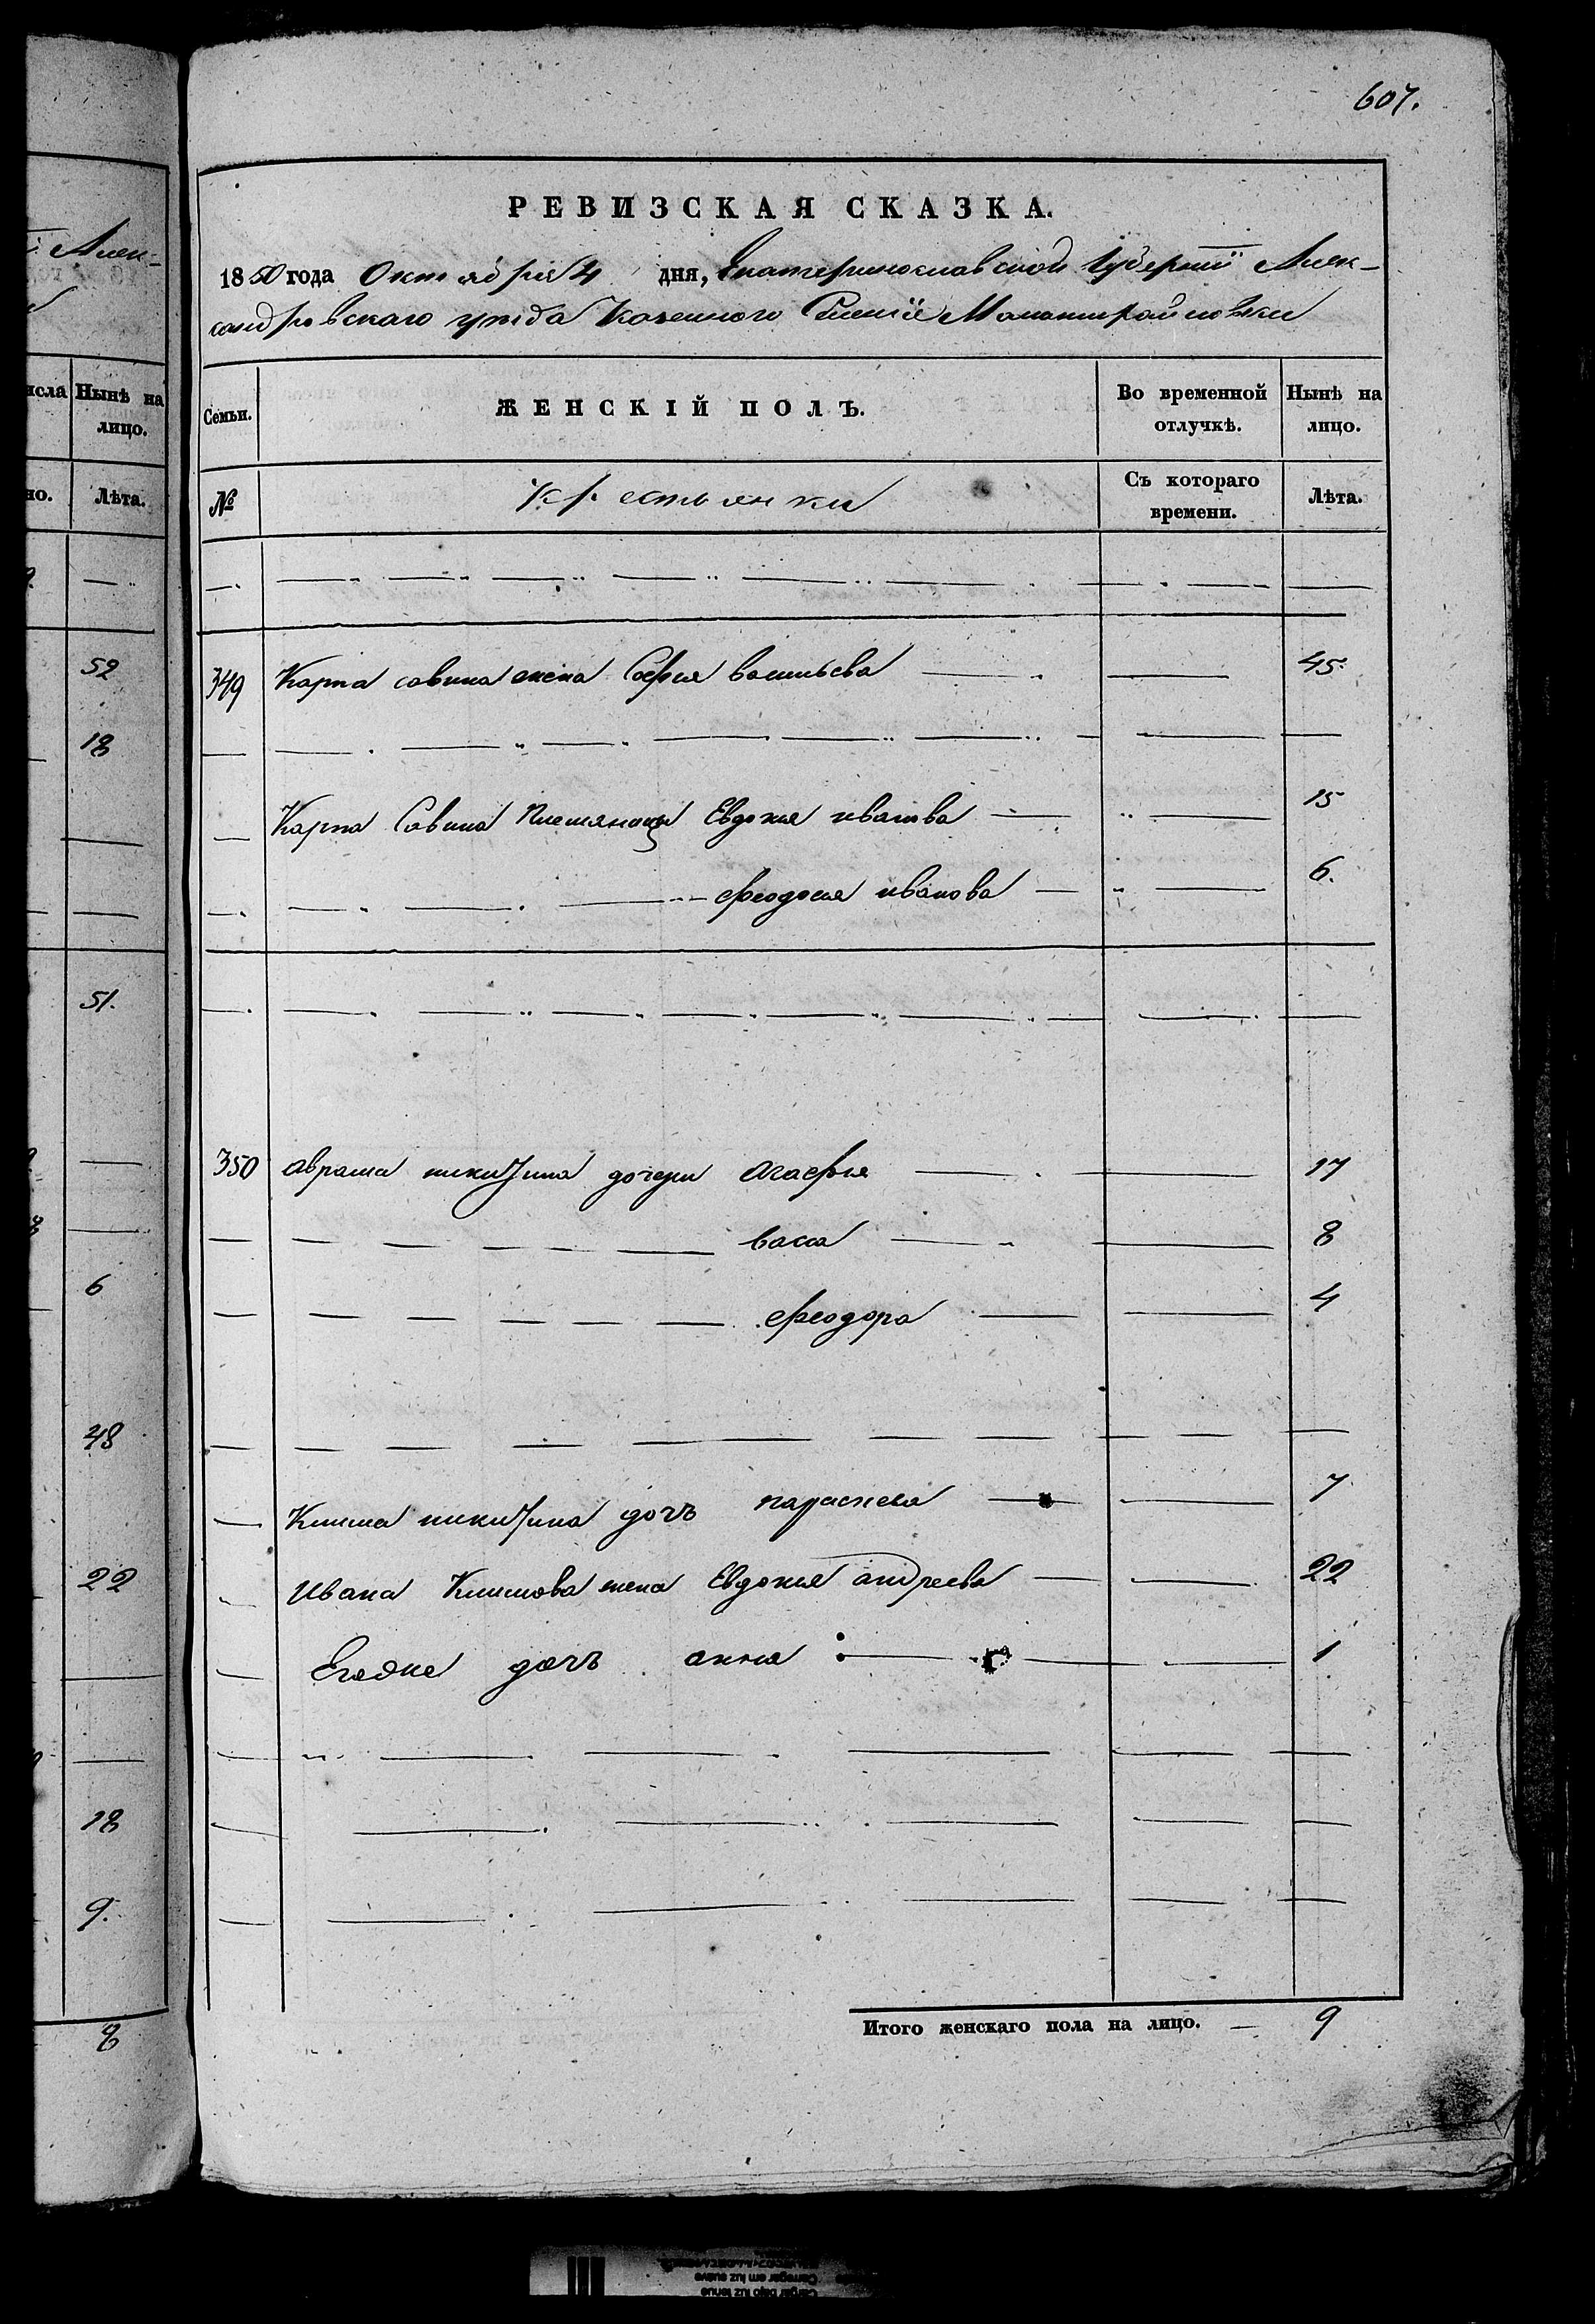 607.
Алек-
РЕВИЗСКАЯ СКАЗКА.
1850 года Октября 4 дня, Екатеринославской Губернии Алек-
сандровскаго уезда Казенного Селенiя
исла Нынѣ на лицо.
но. Лѣта.
Семьи. ЖЕНСКІЙ ПОЛЪ. Во временной отлучкѣ. Нынѣ на лицо.
№ крестьянки Съ котораго времени. Лѣта.
52
349 Карпа савина жена София васильева 45.
18
Карпа Савина Племяницы Евдокия иванова 15
Феодосия иванова 6.
51.
350 аврама никитина дочери агафья 17
васа 8
6
Феодора 4
48
Клима никитина дочь параскева 7
22
ивана Климова жена Евдокия андреева 22
Егоже дочь анна 1
18
9.
8
Итого женскаго пола на лицо. 9